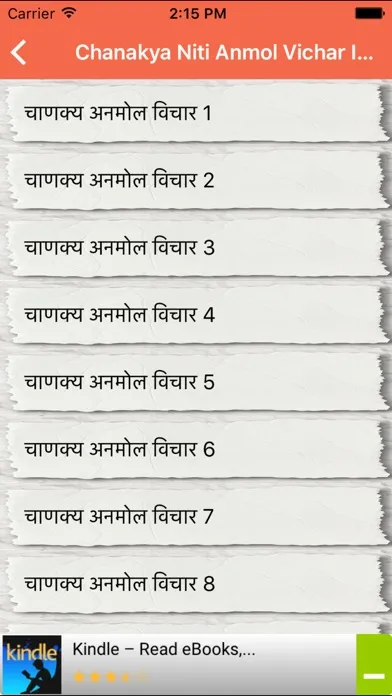 Carrier 2:15 PM
Chanakya Niti Anmol Vichar I...
चाणक्य अनमोल विचार 1
चाणक्य अनमोल विचार 2
चाणक्य अनमोल विचार 3
चाणक्य अनमोल विचार 4
चाणक्य अनमोल विचार 5
चाणक्य अनमोल विचार 6
चाणक्य अनमोल विचार 7
चाणक्य अनमोल विचार 8
kindle
Kindle – Read eBooks,...